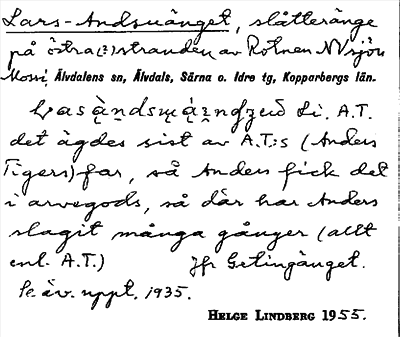 Lars-Andsuänget, slåtteränge
på östra(?)stranden av Rotnen NV sjön
Mossi, Älvdalens sn, Älvdals, Särna o. Idre tg, Kopparbergs län.
Li. A.T.
det ägdes sist av A.T:s (Anders
Tigers) far, så Anders fick det
i arvegods, så där har Anders
slagit många gånger (allt
enl. A.T.) Jfr Getingänget.
Se äv. uppt. 1935.
HELGE LINDBERG 1955.